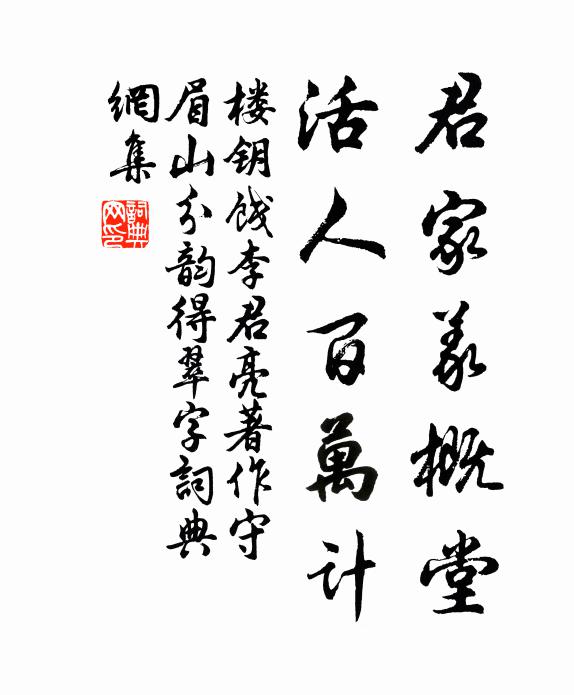 君家義概堂
活人百萬計
楼钥饯李君亮著作守
眉山分韵得翠字詞典
網集
詞典
网印